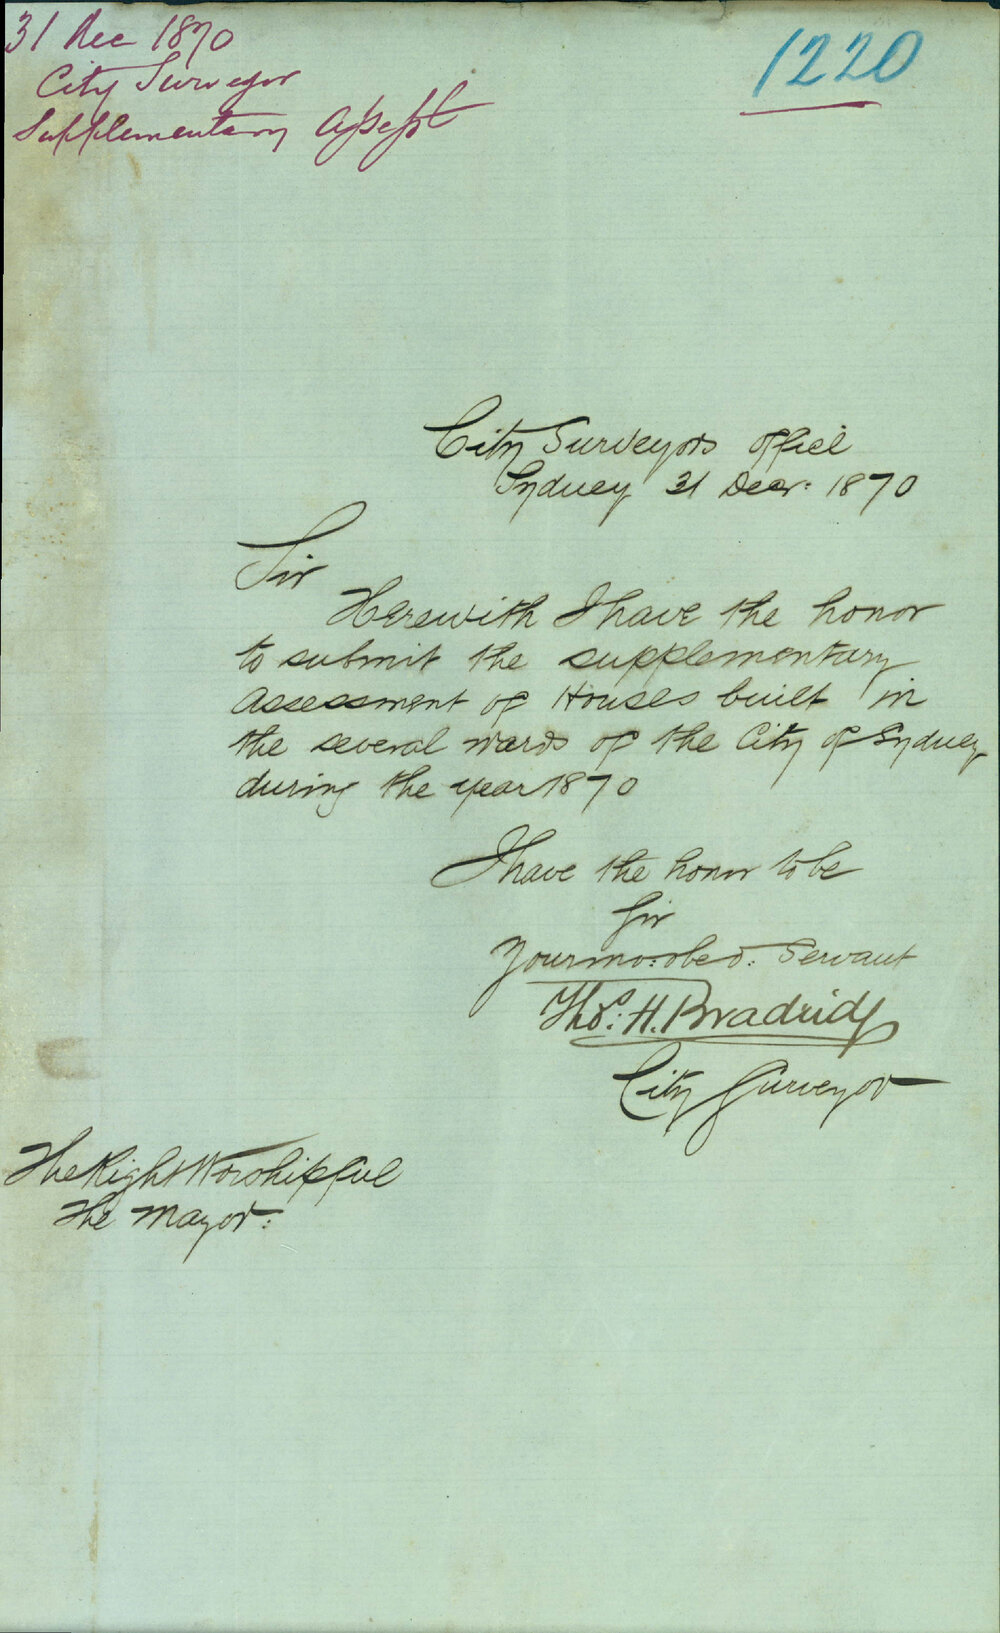 31 Dec 1870
City Surveyor
Supplementary Assesst
1220
City Surveyors office
Sydney 31 Decr: 1870
Sir
Herewith I have the honor
to submit the supplementary
assessment of Houses built in
the several wards of the City of Sydney
during the year 1870
I have the honor to be
Sir
Your mo: obed: Servant
Thos: H. Bradridge
City Surveyor
The Right Worshipful
The Mayor: